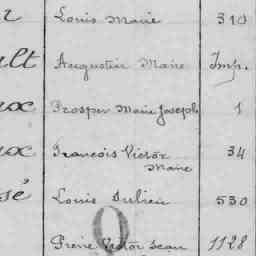 Louis Marie 310
ult Augustin Marie Imp.
oux Prosper Marie Joseph 1
oux François Victor 34
Marie
sé Louis Julien 530
Q
Pierre Victor Jean 1128